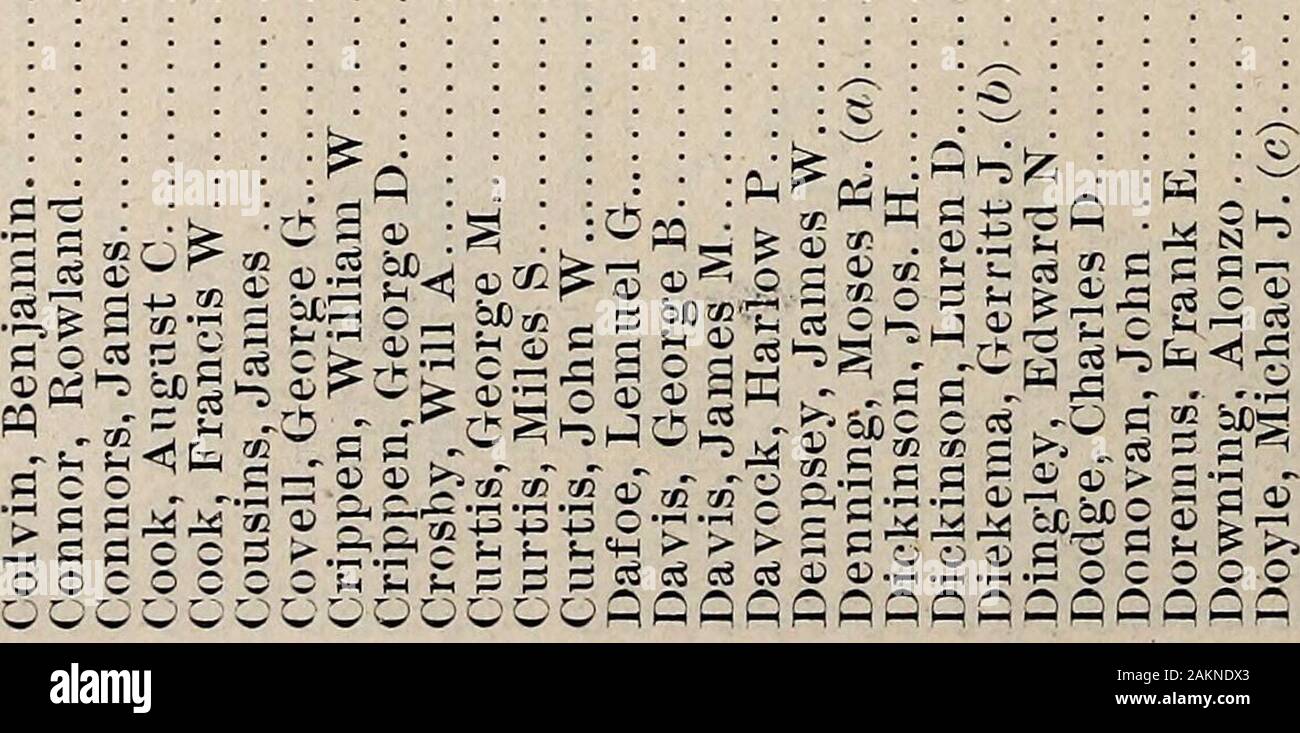 Colvin, Benjamin..........
Connor, Rowland..........
Connors, James..........
Cook, August C..........
Cook, Francis W..........
Cousins, James..........
Covell, George G..........
Crippen, William W..........
Crippen, George D..........
Crosby, Will A..........
Curtis, George M..........
Curtis, Miles S..........
Curtis, John W..........
Dafoe, Lemuel G..........
Davis, George B..........
Davis, James M..........
Davock, Harlow P..........
Dempsey, James W..........
Denning, Moses R. (a)..........
Dickinson, Jos. H..........
Dickinson, Luren D..........
Diekema, Gerritt J. (b)..........
Dingley, Edward N..........
Dodge, Charles D..........
Donovan, John..........
Doremus, Frank E..........
Downing, Alonzo..........
Doyle, Michael J. (c)..........
alamy
Image ID: 2AKNDX3
www.alamy.com